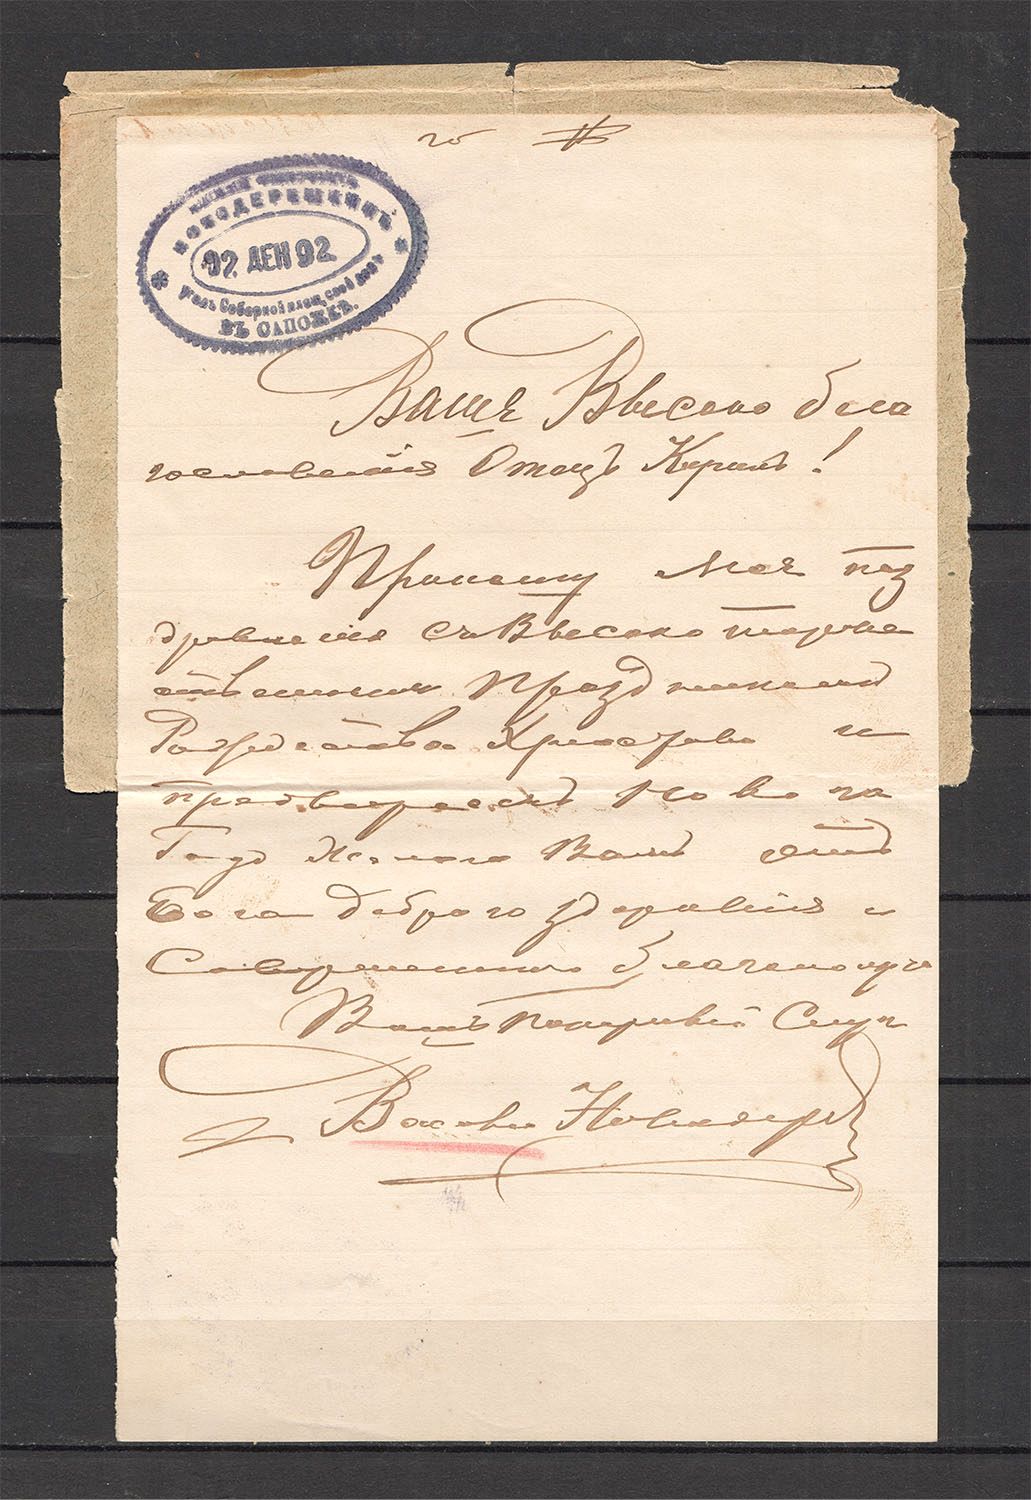 НОВОДЕРЕЖКИНЪ
92. ДЕК 92.
уголъ Соборной площ. свой домъ
ВЪ САПОЖКѢ.
Ваше Высоко бла
гословенія Отецъ Кирилъ!
Приношу Мое поз
дравленія съ Высоко торже
ственнымъ Праздникомъ
Рождества Христова и
предверіемъ Нова га
Года Желаю Вамъ отъ
Бога доброго здоравія и
Совершенно благополуч
Вашъ покорный Слуг